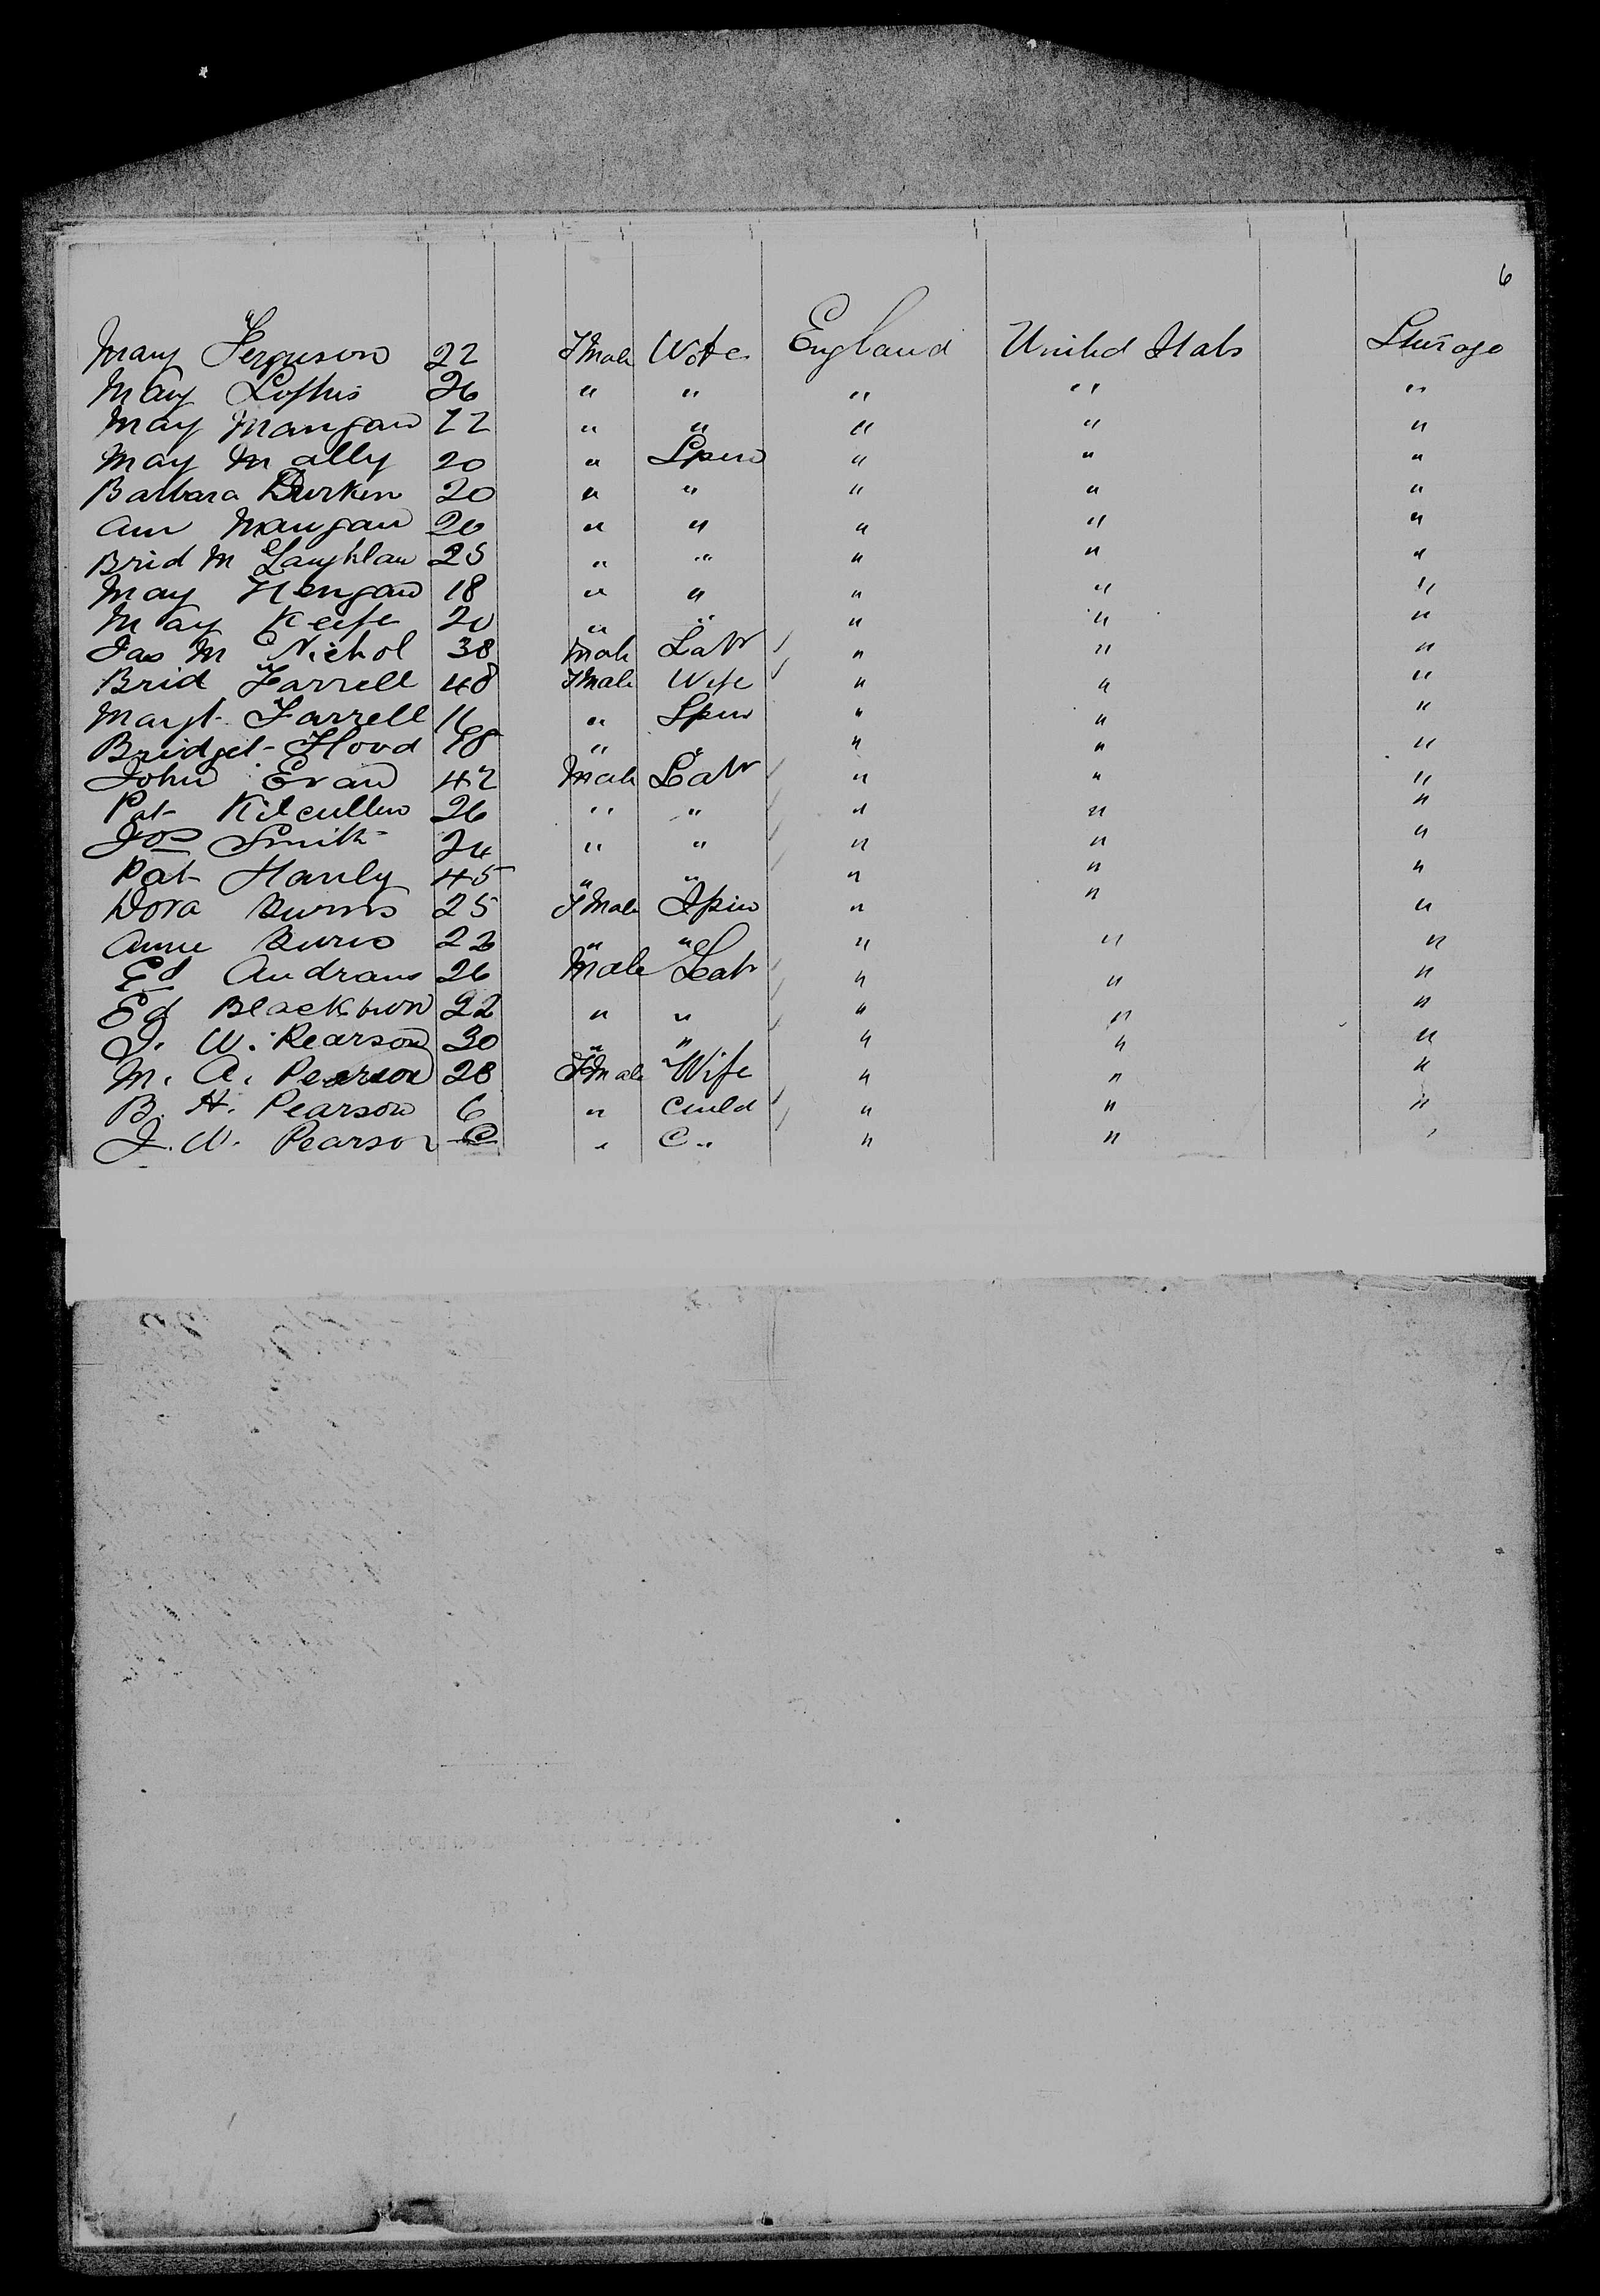 6
Mary Ferguson 22 Fmale Wife England United Stats Sturage
May Loftus 26 " " " " "
May Mangan 22 " " " " "
May McNally 20 " Spin " " "
Barbara Durken 20 " " " " "
Ann Mangan 20 " " " " "
Brid Mc Laughlan 25 " " " " "
May Hengan 18 " " " " "
May Keefe 20 " " " " "
Jas Mc Nichol 38 Male Labr " " "
Brid Farrell 48 Fmale Wife " " "
Margt Farrell 16 " Spin " " "
Bridget Hood 18 " " " " "
John Evan 42 Male Labr " " "
Pat Kilcullen 26 " " " " "
Jos Smith 24 " " " " "
Pat Hanly 45 " " " " "
Dora Burns 25 Fmale Spin " " "
Anne Burns 22 " " " " "
Ed Andrans 26 Male Labr " " "
Ed Blackburn 22 " " " " "
J. W. Pearson 30 " " " " "
M. A. Pearson 28 Fmale Wife " " "
B. H. Pearson 6 " Child " " "
J. W. Pearson " C " " " "